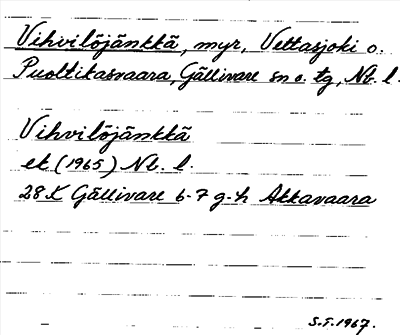 Vihvilöjänkkä, myr, Vettasjoki o.
Puoltikasvaara, Gällivare sn o. tg, Nb. l.
Vihvilöjänkkä
ek (1965) Nb. l.
28 K Gällivare 6-7 g-h Akkavaara
S.F. 1967.